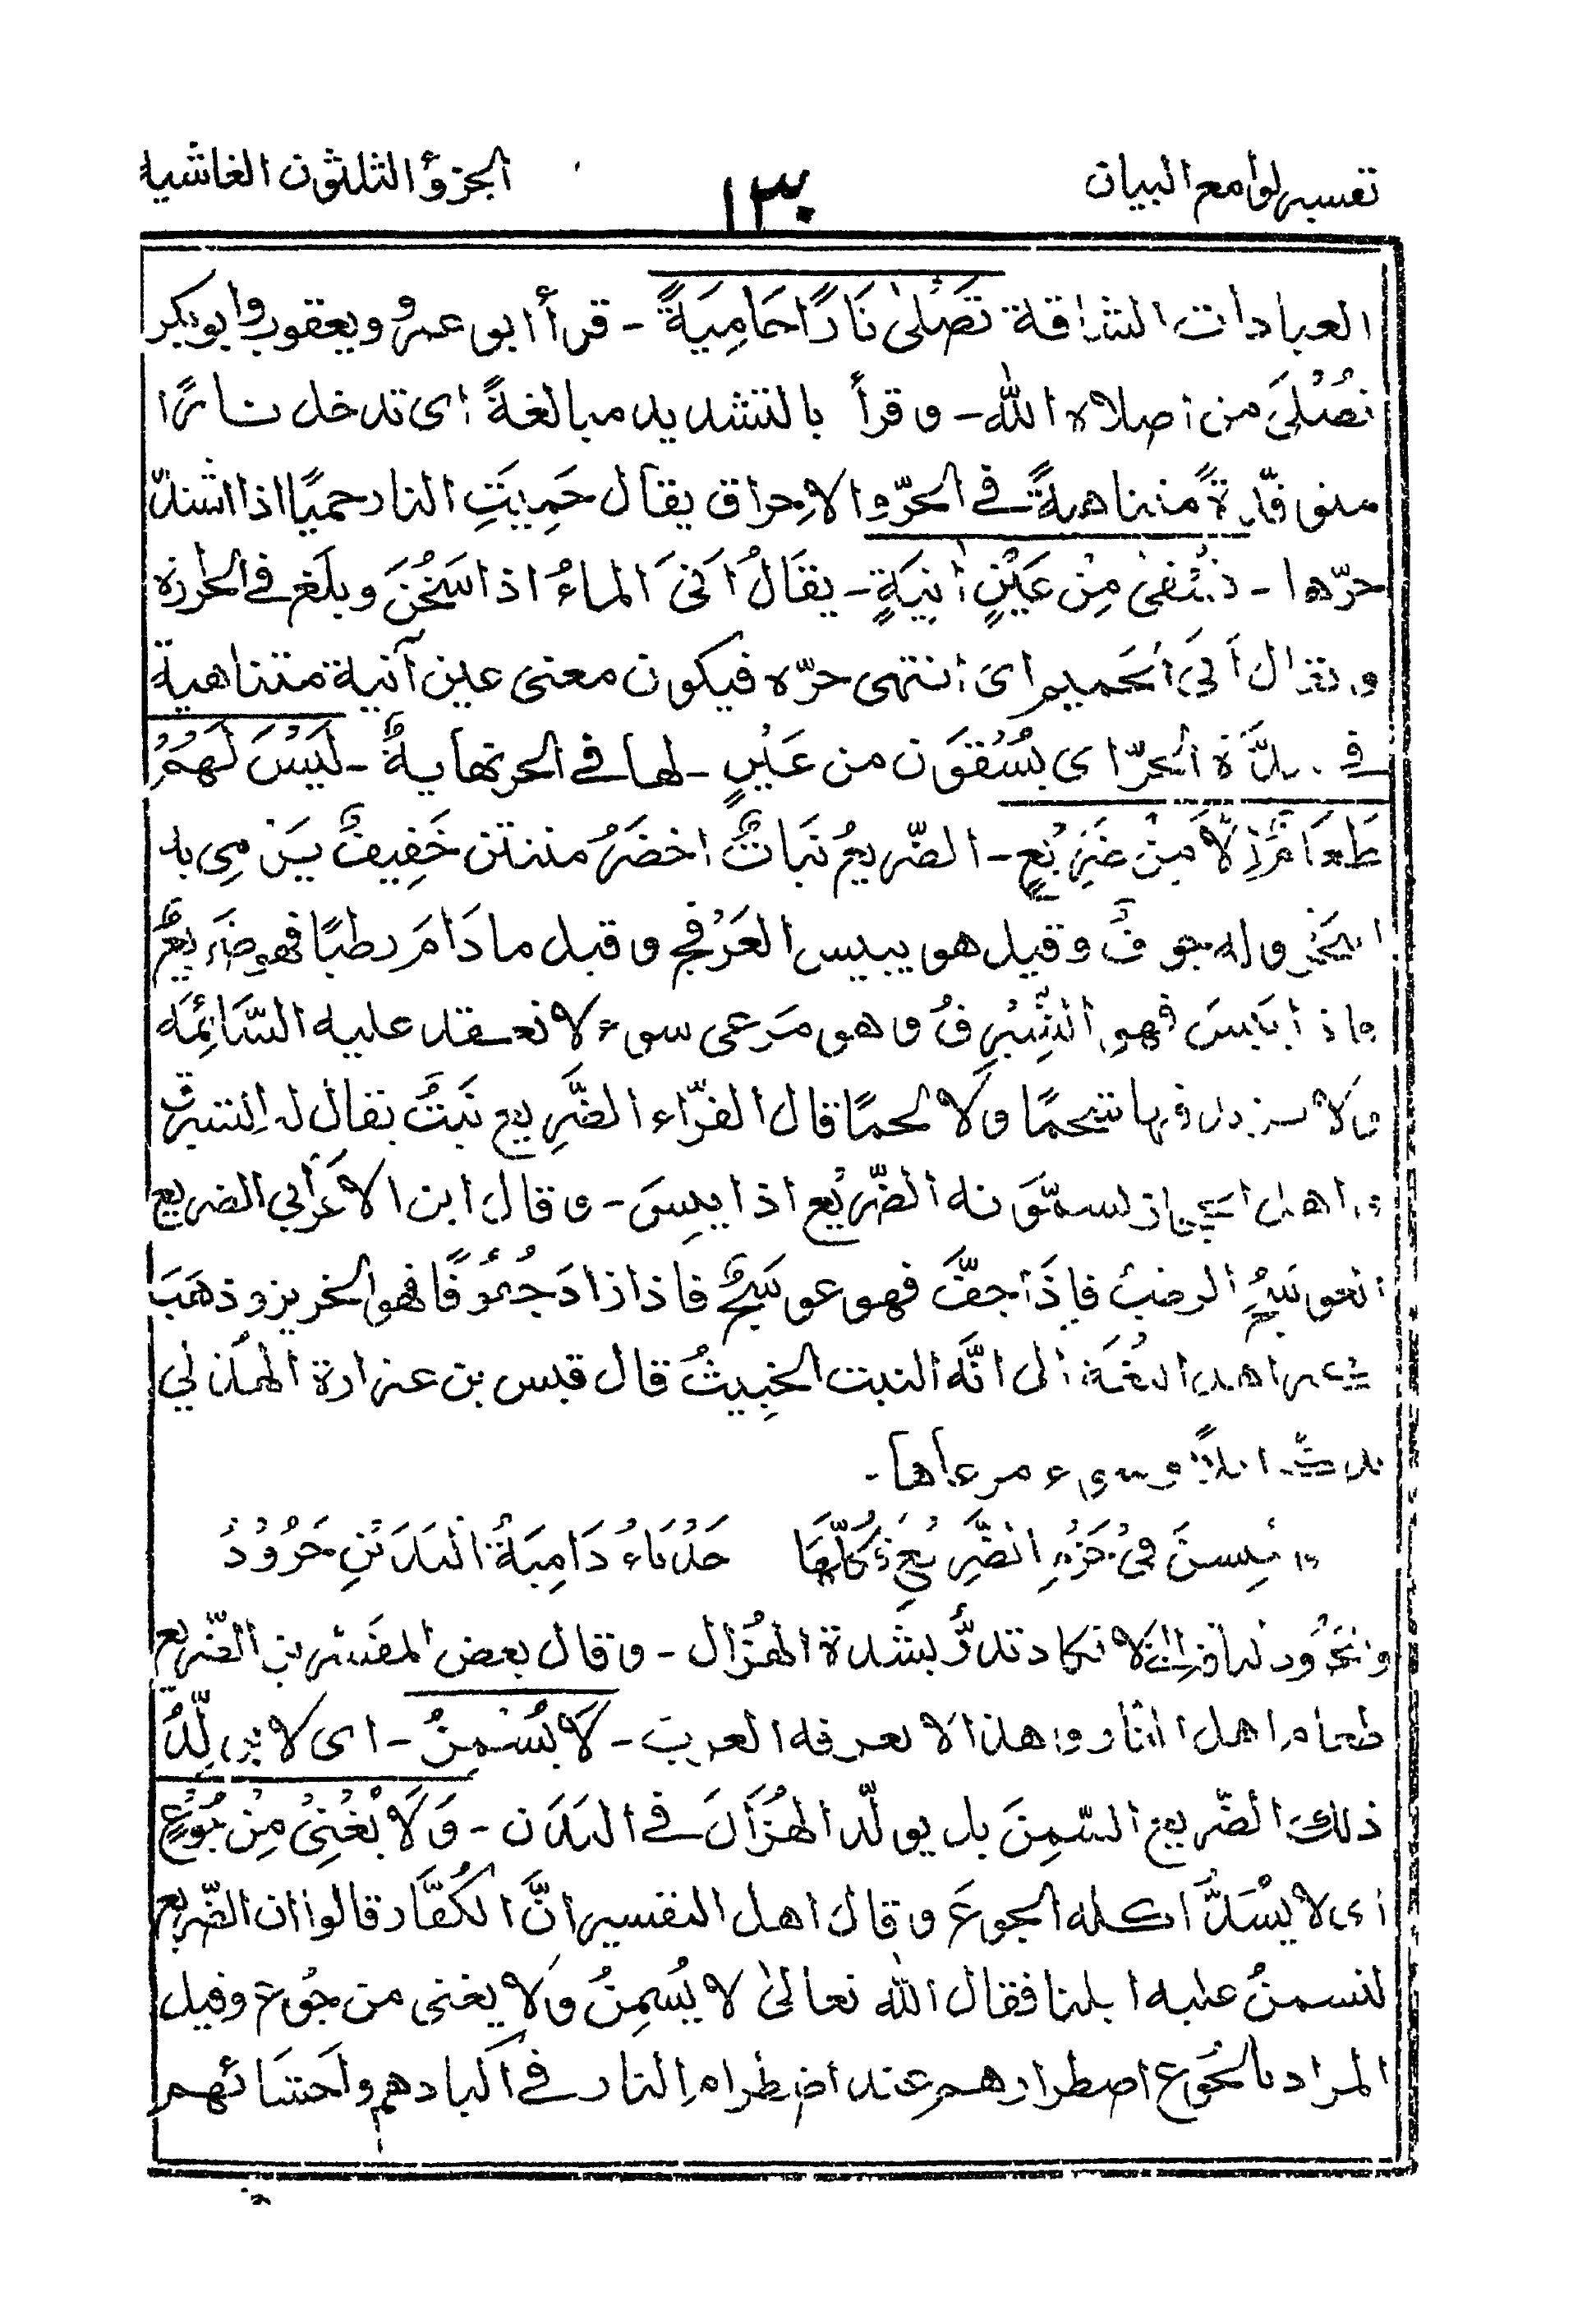 تفسير لوامع البيان
١٣٠
الجزؤ الثلثون الغاشية
العبادات الشاقة تَصْلىٰ نَارًا حَامِيَةً - قرأ ابو عمرو ويعقوب وابوبكر
تُصْلىَ من اصلاه الله - وقرأ بالتشديد مبالغةً اى تدخل نارًا
متوقّدةً متناهيةً فى الحرّ والاحراق يقال حَمِيَتِ النار حميًا اذا اشتدّ
حرّها - تُسْقىٰ مِنْ عَيْنٍ اٰنِيَةٍ - يقَالُ اَنىَ الماءُ اذا سَخُنَ وبلَغ فى الحرارة
ويقال اَنىَ الحميم اى انتهى حرّه فيكون معنى عين آنية متناهية
فى شدّة الحرّ اى يُسْقَوَن من عَيْنٍ - لها فى الحر نهايةٌ - لَيْسَ لَهُمْ
طَعَامٌ اِلَّا مِنْ ضَرِيْعٍ - الضّريعُ نَبَاتٌ اخضَرُ منتن خَفِيفٌ يَرْمِى به
البحْر وله جوفٌ وقيل هو يبيس العَرْفج وقيل ما دَامَ رطبًا فهو ضَريعٌ
فاذا يَبسَ فهو الشِّبْرِقُ وهو مَرعى سوء لا تعقد عليه السَّائِمَه
شحمًا ولا لحمًا قال الفرّاء الضَّرِيع نَبَتٌ يقال له الشبرق
واهل الحجاز يسمّوَنه الضّرِيْع اذا يبِسَ - وقال ابن الاعَرأبي الضريع
العوسَجُ الرطبُ فاِذَا جفَّ فهو عوسَجٌ فاذا زادَ جُفُوفًا فهو الخريز وذهَبَ
اهل اللغَة الى انَّه النبت الخبِيثُ قال قيس بن عيزارة الهذلي
ابلًا وسوء مرعاها -
وحُبِسنَ فىْ هَزْمِ الضَّرِيْعِ فَكُلُّهَا حَدْبَاءُ دَامِيَةُ الْيَدَيْنِ حَرُوْدُ
لا تكاد تدرُّ بشَدة الهُزال - وقال بعض المفسّرين الضّريع
طعام اهل النار وهذا لا يعرفه العرب - لَا يُسْمِنُ - اى لا يولِّدُ
ذلك الضّريع السّمِنَ بل يولّد الهُزَالَ فى البدَن - وَلَا يُغْنِىْ مِنْ جُوْعٍ
اى لا يَسُدُّ اكله الجوعَ وقال اهل التفسير انَّ الكُفَّار قالوا ان الضّريع
لتسمنُ عليه ابلنا فقال الله تعالىٰ لا يُسْمِنُ وَلا يغنى من جُوع وقيل
المراد بالجُوع اضطرارهم عند اضطرام النار فى اكبادهم واحشَائهم